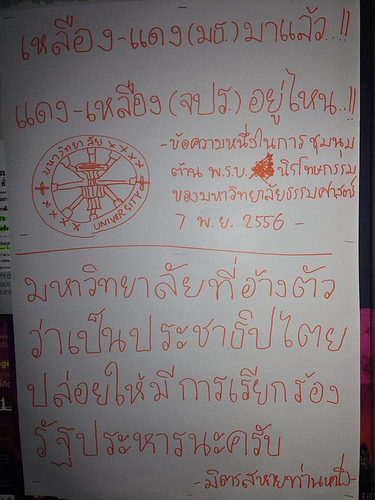 เหลือง-แดง(มธ.)มาแล้ว..!!
แดง-เหลือง(จปร.)อยู่ไหน..!!
-ข้อความหนึ่งในการชุมนุม
ต้าน พ.ร.บ. นิรโทษกรรม
ของมหาวิทยาลัยธรรมศาสตร์
7 พ.ย. 2556 -
มหาวิทยาลัย x x x x x
UNIVERSITY
มหาวิทยาลัยที่อ้างตัว
ว่าเป็นประชาธิปไตย
ปล่อยให้มีการเรียกร้อง
รัฐประหารนะครับ
-มิตรสหายท่านหนึ่ง-